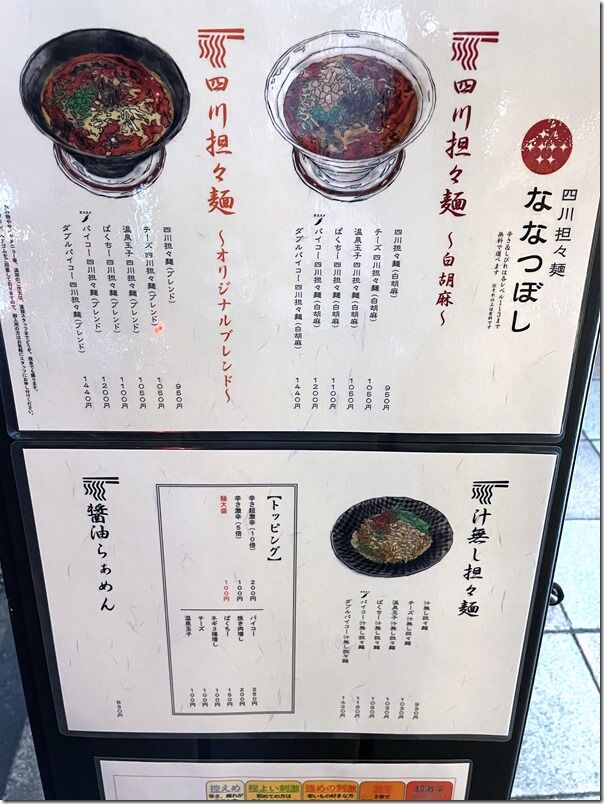 四川担々麺
ななつぼし
辛さ＆しびれは各レベル1〜3まで
無料で選べます
四川担々麺 〜白胡麻〜
四川担々麺(白胡麻) 950円
チーズ四川担々麺(白胡麻) 1050円
温泉玉子四川担々麺(白胡麻) 1050円
ぱくちー四川担々麺(白胡麻) 1100円
パイコー四川担々麺(白胡麻) 1200円
ダブルパイコー四川担々麺(白胡麻) 1440円
四川担々麺 〜オリジナルブレンド〜
四川担々麺(ブレンド) 950円
チーズ四川担々麺(ブレンド) 1050円
温泉玉子四川担々麺(ブレンド) 1050円
ぱくちー四川担々麺(ブレンド) 1100円
パイコー四川担々麺(ブレンド) 1200円
ダブルパイコー四川担々麺(ブレンド) 1440円
汁無し担々麺
汁無し担々麺 930円
チーズ汁無し担々麺 1030円
温泉玉子汁無し担々麺 1030円
ぱくちー汁無し担々麺 1080円
パイコー汁無し担々麺 1180円
ダブルパイコー汁無し担々麺 1420円
【トッピング】
辛さ超激辛(10倍) 200円
辛さ激辛(5倍) 100円
麺大盛 100円
パイコー 250円
挽き肉増し 200円
ぱくちー 150円
ネギ3種増し 100円
チーズ 100円
温泉玉子 100円
醤油らぁめん
830円
控えめ
程よい刺激
強めの刺激
激辛
超激辛
初めての方は
辛いもの好きな方